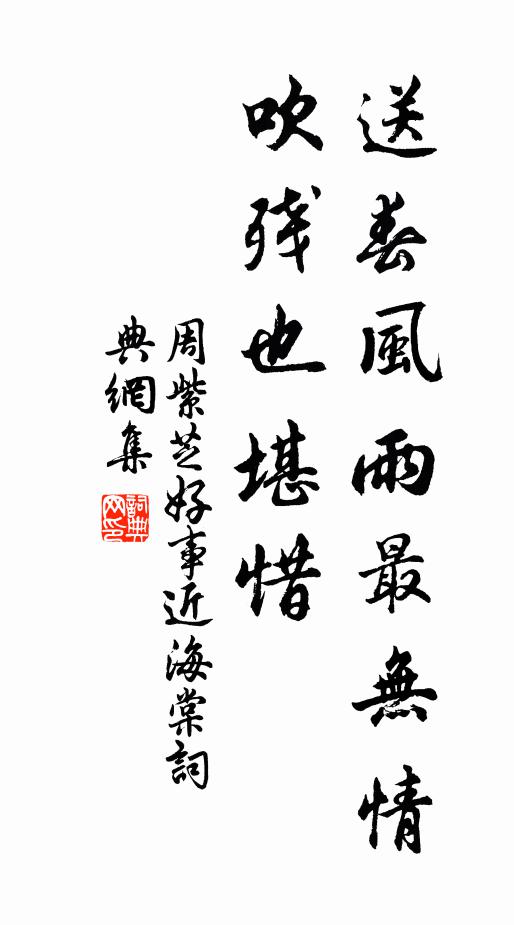 送春風雨最無情
吹残也堪惜
周紫芝好事近海棠詞
典網集
詞典网印